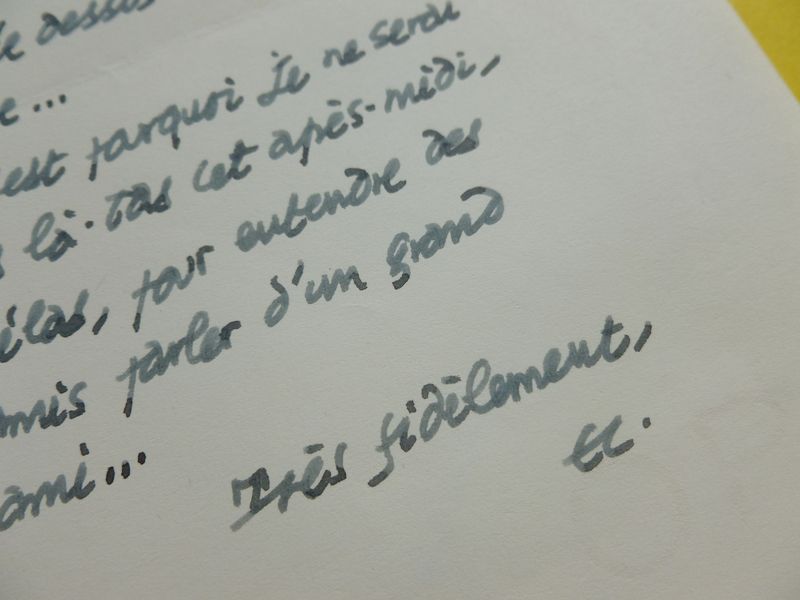 le dessus
e...
est pourquoi Je ne serai
s là. Pas cet après-midi,
élas, pour entendre des
amis parler d'un grand
ami...
Très fidèlement,